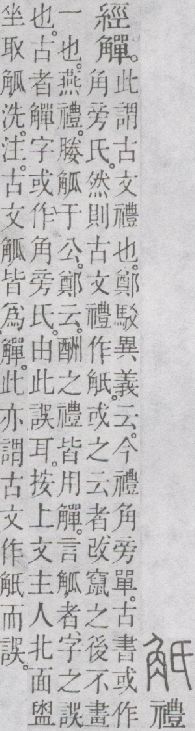 觗禮
經觶。
此謂古文禮也。鄭駮異義云。今禮角旁單。古書或作
角旁氏。然則古文禮作觗。或之云者。改竄之後不畫
一也。燕禮。媵觚于公。鄭云。酬之禮皆用觶。言觚者。字之誤
也。古者觶字或作角旁氏。由此誤耳。按上文主人北面盥
坐取觚洗。注。古文觚皆爲觶。此亦謂古文作觗而誤。